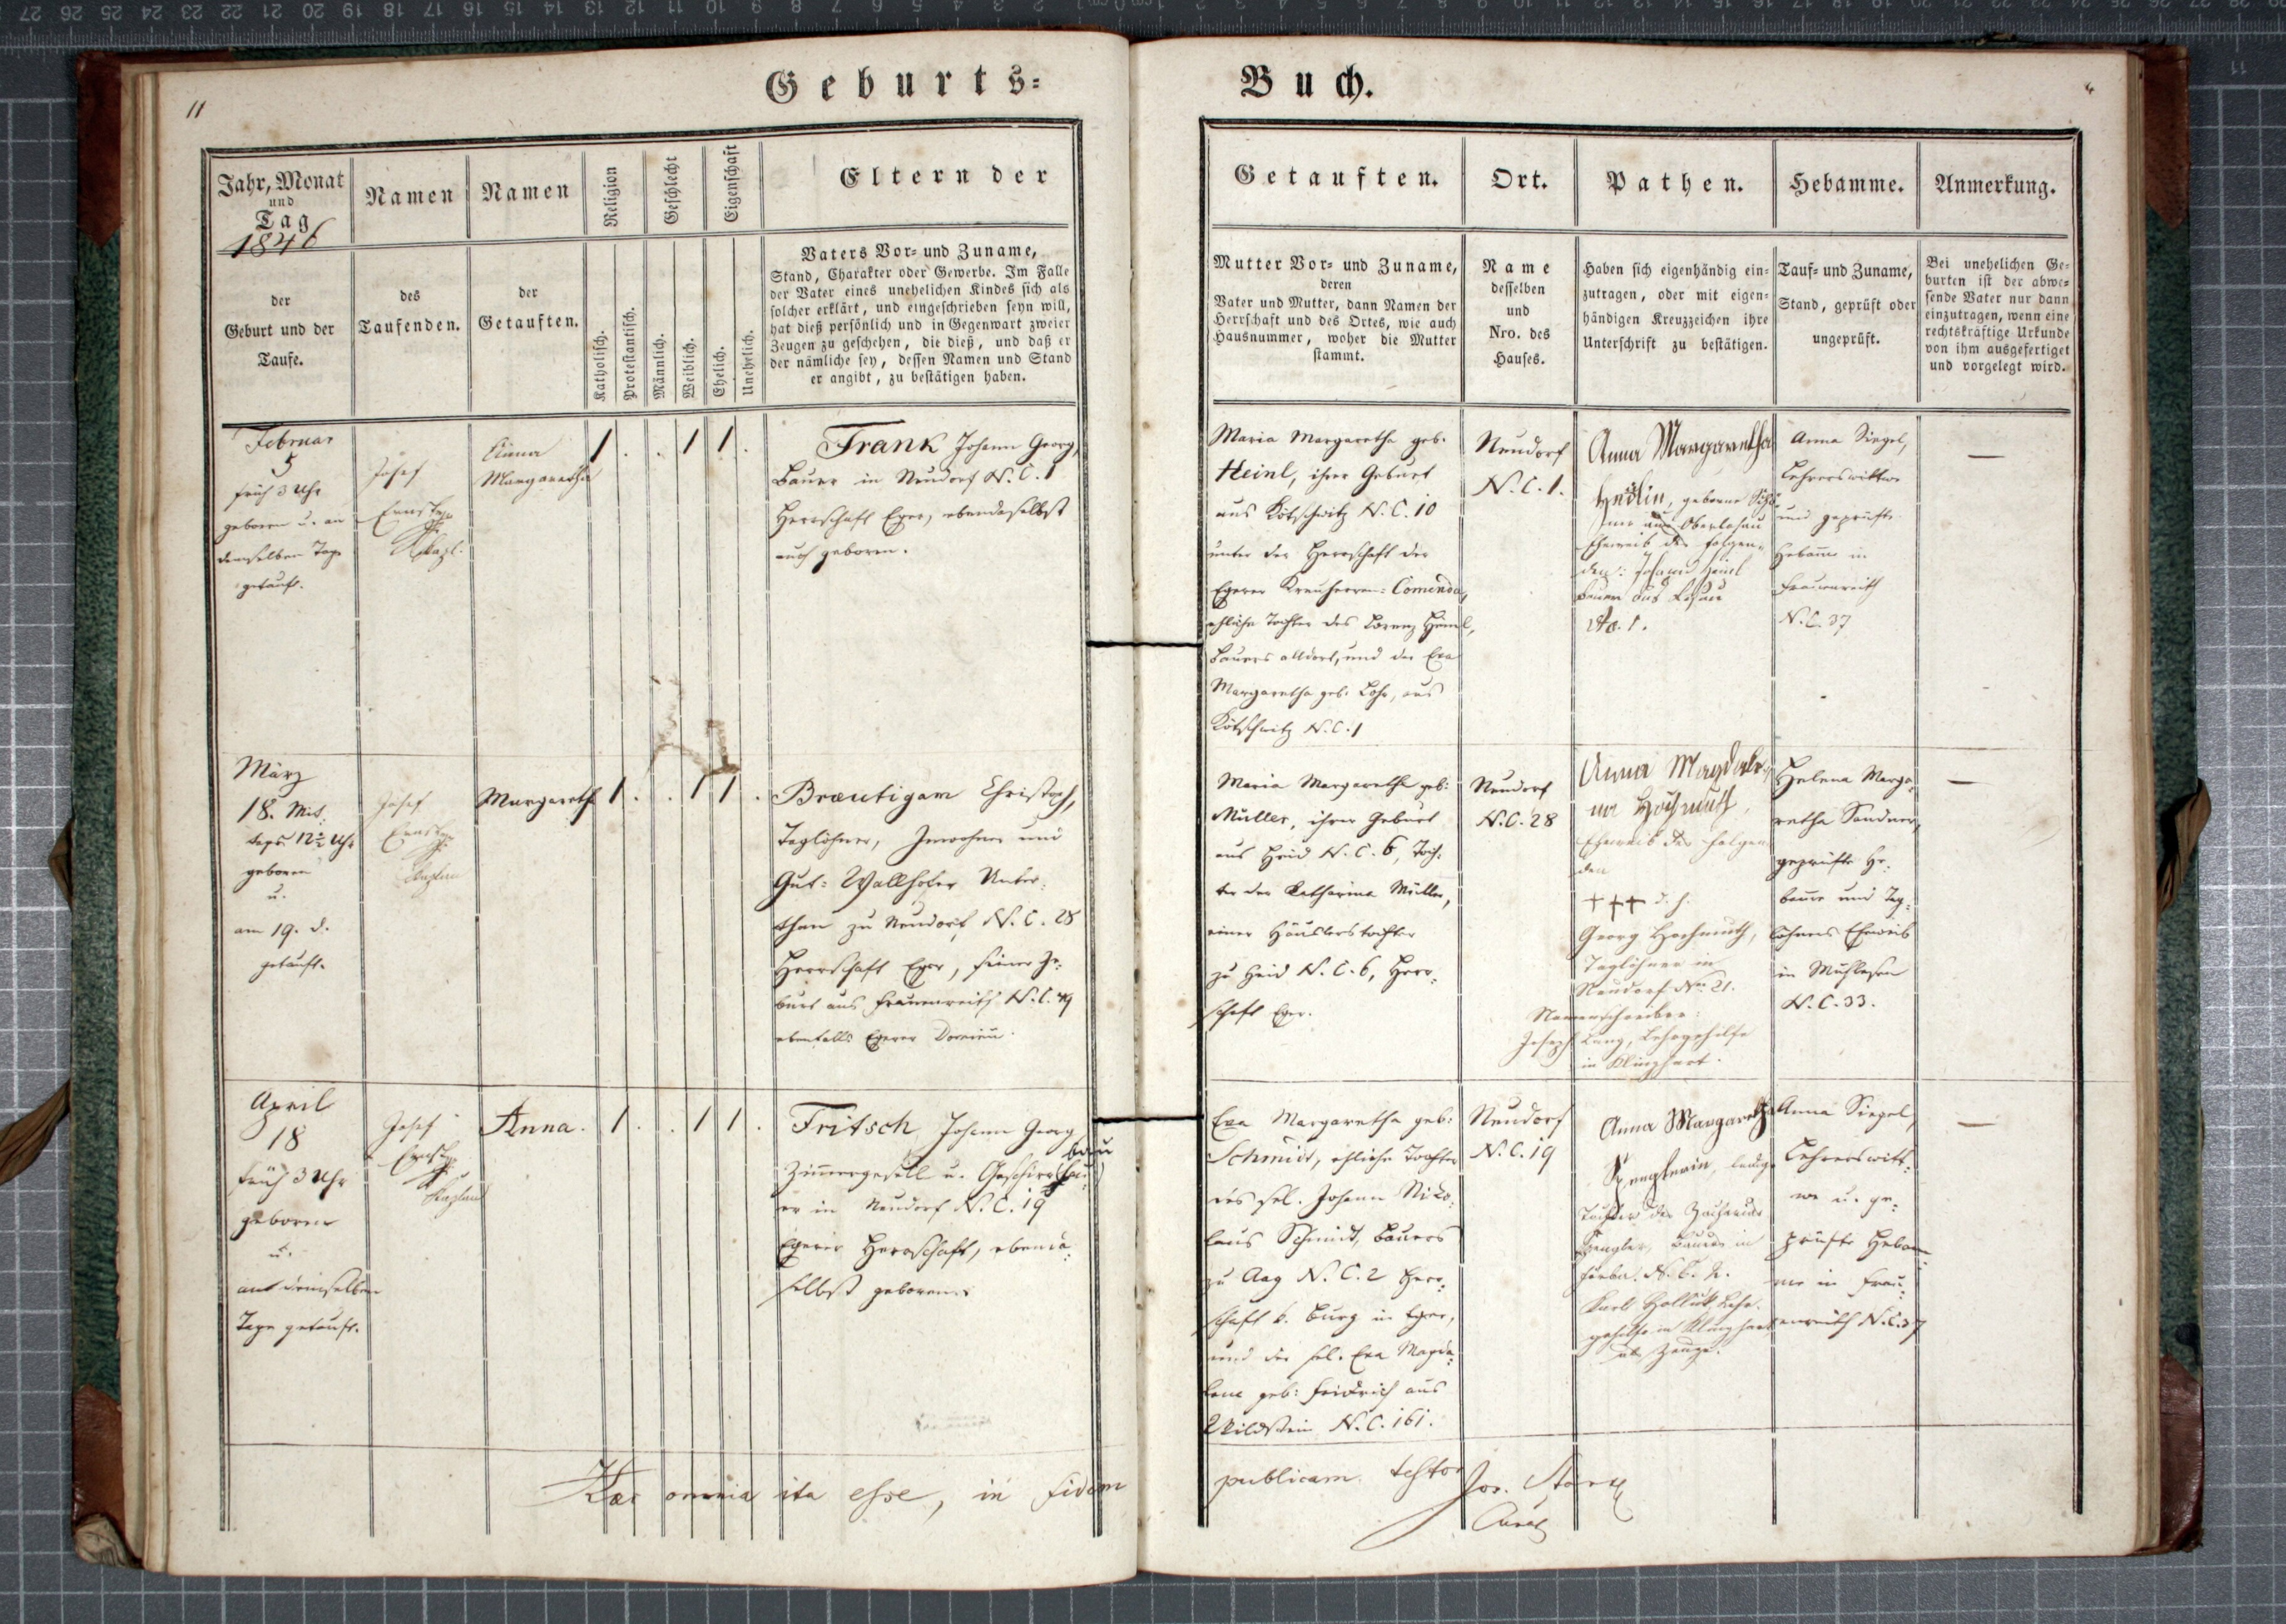 Geburts-
Buch.
11
Jahr, Monat
und
Tag
1846
der
Geburt und der
Taufe.
Namen
des
Taufenden.
Namen
der
Getauften.
Religion
Katholisch.
Protestantisch.
Geschlecht
Männlich.
Weiblich.
Eigenschaft
Ehelich.
Unehelich.
Eltern der
Vaters Vor- und Zuname,
Stand, Charakter oder Gewerbe. Im Falle
der Vater eines unehelichen Kindes sich als
solcher erklärt, und eingeschrieben seyn will,
hat dieß persönlich und in Gegenwart zweier
Zeugen zu geschehen, die dieß, und daß er
der nämliche sey, dessen Namen und Stand
er angibt, zu bestätigen haben.
Getauften.
Mutter Vor- und Zuname,
deren
Vater und Mutter, dann Namen der
Herrschaft und des Ortes, wie auch
Hausnummer, woher die Mutter
stammt.
Ort.
Name
desselben
und
Nro. des
Hauses.
Pathen.
Haben sich eigenhändig ein-
zutragen, oder mit eigen-
händigen Kreuzzeichen ihre
Unterschrift zu bestätigen.
Hebamme.
Tauf- und Zuname,
Stand, geprüft oder
ungeprüft.
Anmerkung.
Bei unehelichen Ge-
burten ist der abwe-
sende Vater nur dann
einzutragen, wenn eine
rechtskräftige Urkunde
von ihm ausgefertiget
und vorgelegt wird.
Februar
5
früh 3 Uhr
geboren u. an
demselben Tage
getauft.
Josef
Anna
Margaretha
1 . . 1 1 .
Frank Johann Georg,
Bauer in Neudorf N. C. 1
Herrschaft Eger, ebendaselbst
auch geboren.
Maria Margaretha geb.
Heinl, ihrer Geburt
aus Kötschwitz N. C. 10
unter der Herrschaft der
Egerer Kreuzherren-Comenda,
ehliche Tochter des Lorenz Heinl,
Bauers alldort, und der Eva
Margaretha geb. Lohr, aus
Kötschwitz N. C. 1
Neudorf
N. C. 1.
Anna Margaretha
geborne
aus Oberlosau
Eheweib des folgen-
den: Johann Heinl
Bauer aus Losau
No. 1.
Anna Siegel,
Lehrerswittwe
und geprüfte
Hebamme in
Frauenreuth
N. C. 37
—
März
18. Mit-
tags 12 Uhr
geboren
u.
am 19. d.
getauft.
Josef
Kaplan
Margareth
1 . . 1 1 .
Braeutigam Christoph,
Taglöhner, Inwohner und
Gut-Wallhofer Unter-
than zu Neudorf N. C. 28
Herrschaft Eger, seiner Ge-
burt aus Frauenreuth N. C. 49
ebenfalls Egerer
Maria Margaretha geb:
Müller, ihrer Geburt
aus Haid N. C. 6, Toch-
ter der Katharina Müller,
einer Häuslerstochter
zu Haid N. C. 6, Herr-
schaft Eger.
Neudorf
N. C. 28
Anna Magdale-
na Hochmuth,
Eheweib des folgen-
den
+++ d. h.
Georg Hochmuth,
Taglöhner in
Neudorf No 21.
Namensschreiber:
Joseph Lang, Lehrgehilfe
in Klinghart.
Helena Marga-
retha Sandner,
geprüfte He-
bamme und Tag-
löhners Eheweib
in Mühlessen
N. C. 33.
—
April
18
früh 3 Uhr
geboren
u.
an demselben
Tage getauft.
Josef
Kaplan
Anna.
1 . . 1 1 .
Fritsch Johann Georg
Zimmergesell u. Geschirrbau-
er in Neudorf N. C. 19
Egerer Herrschaft, ebenda-
selbst geboren.
Eva Margaretha geb:
Schmidt, ehliche Tochter
des sel. Johann Niko-
laus Schmidt, Bauers
zu Aag N. C. 2 Herr-
schaft k. Burg in Eger,
und der sel. Eva Magda-
lena geb: Friedrich aus
Wildstein N. C. 161.
Neudorf
N. C. 19
Anna Margaretha
Spenglerin, ledige
Tochter des Zacharias
Spengler, Bauer in
N. C. 2.
Karl Lehr-
gehilfe in Klinghart
als Zeuge.
Anna Siegel,
Lehrerswitt-
we u. ge-
prüfte Hebam-
me in Frau-
enreuth N. C. 37
—
Haec omnia ita esse, in fidem
publicam testor Jos.